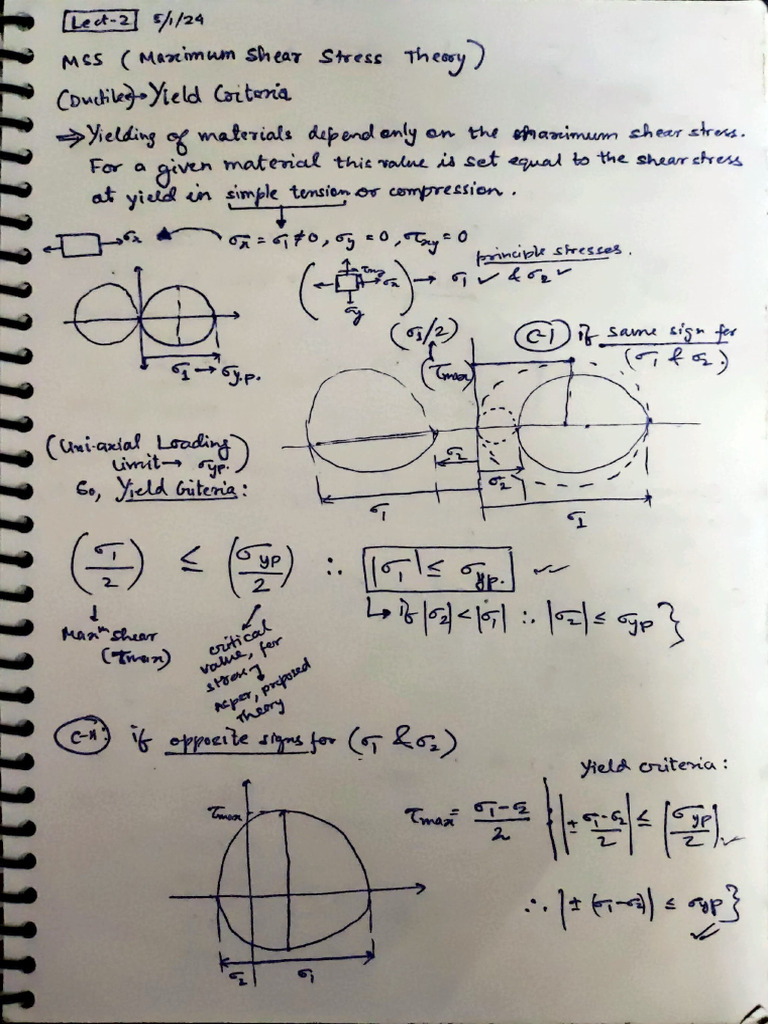 Lect-2 5/1/24
MSS (Maximum Shear Stress Theory)
(Ductile)→Yield Criteria
⇒ Yielding of materials depend only on the maximum shear stress.
For a given material this value is set equal to the shear stress
at yield in simple tension or compression.
σx
σx = σ1 ≠ 0, σy = 0, τxy = 0
principle stresses.
(τxy σx σy) → σ1 ✓ & σ2 ✓
σ1 → σy.p.
(σ1/2)
(τmax)
C-I if same sign for
(σ1 & σ2.)
(Uni-axial Loading
limit → σyp.)
So, Yield Criteria:
σ2
σ1
σ2
σ1
(σ1/2) ≤ (σyp/2) ∴ |σ1| ≤ σyp.
↳ if |σ2| < |σ1| ∴ |σ2| ≤ σyp }
Maxm shear
(τmax)
critical
value, for
as per, proposed
Theory
C-II: if opposite signs for (σ1 & σ2)
Yield criteria:
τmax
τmax = (σ1-σ2)/2 { |± (σ1-σ2)/2| ≤ |σyp/2|
∴ |± (σ1-σ2)| ≤ σyp }
σ2 σ1